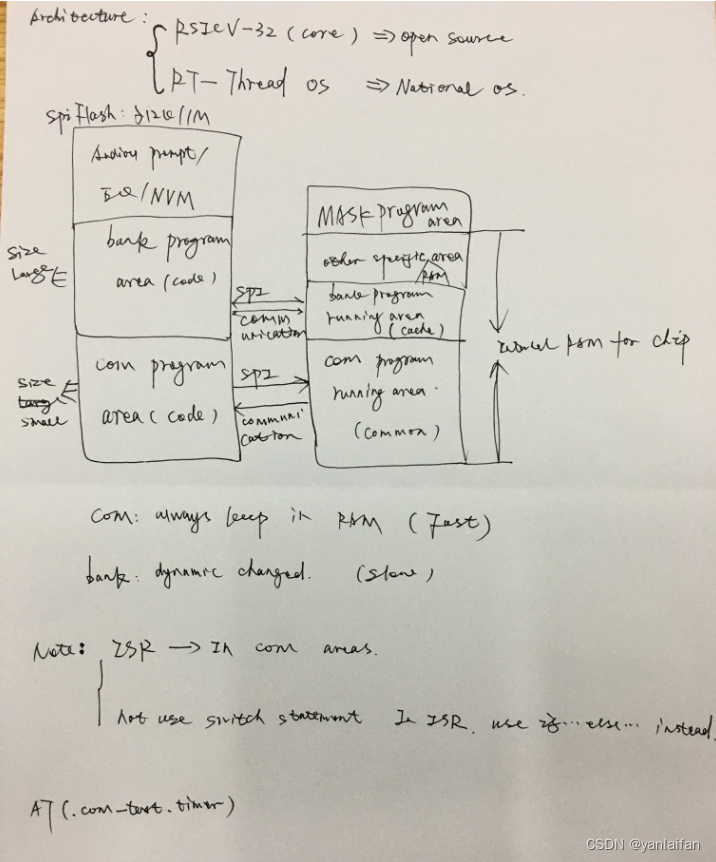 Architecture :
RSICV-32 (core) => open source
RT-Thread os => National os.
spiFlash: 512k/1M
prompt/
/NVM
bank program
area (code)
size
large
com program
area (code)
size
small
SPI
communication
SPI
communication
MASK program
area
other specific area
RAM
bank program
running area
(cache)
com program
running area
(common)
RAM for chip
com: always keep in RAM (Fast)
bank: dynamic changed. (slow)
Note: ISR → In com areas.
not use switch statement In ISR. use if...else... instead.
AT(.com-text.timer)
CSDN @yanlaifan